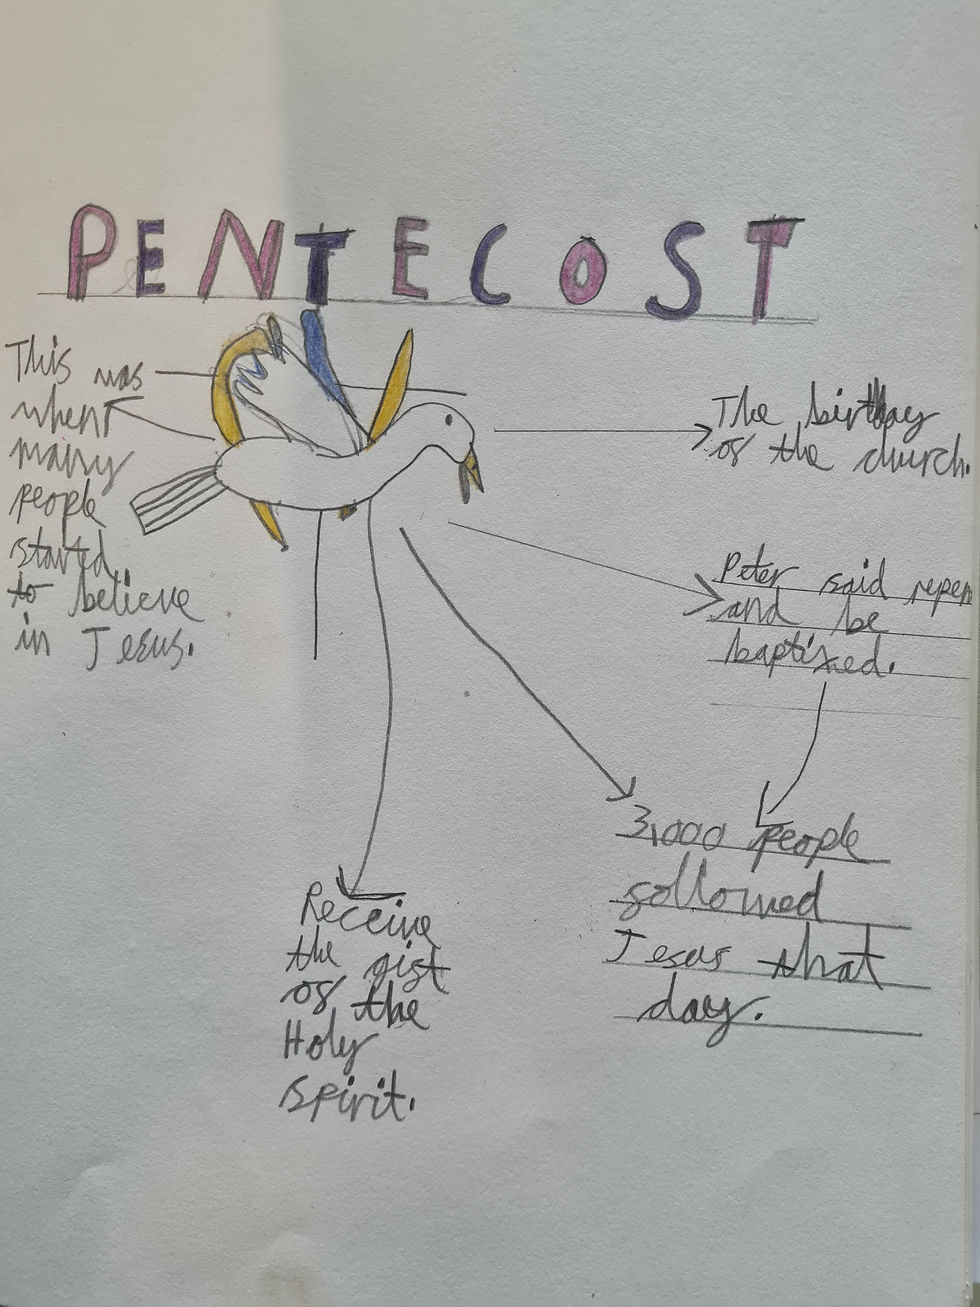 PENTECOST
This was
when
many
people
started
to believe
in Jesus.
The birthday
of the church.
Peter said repen
and be
baptized.
3,000 people
followed
Jesus that
day.
Receive
the gift
of the
Holy
spirit.